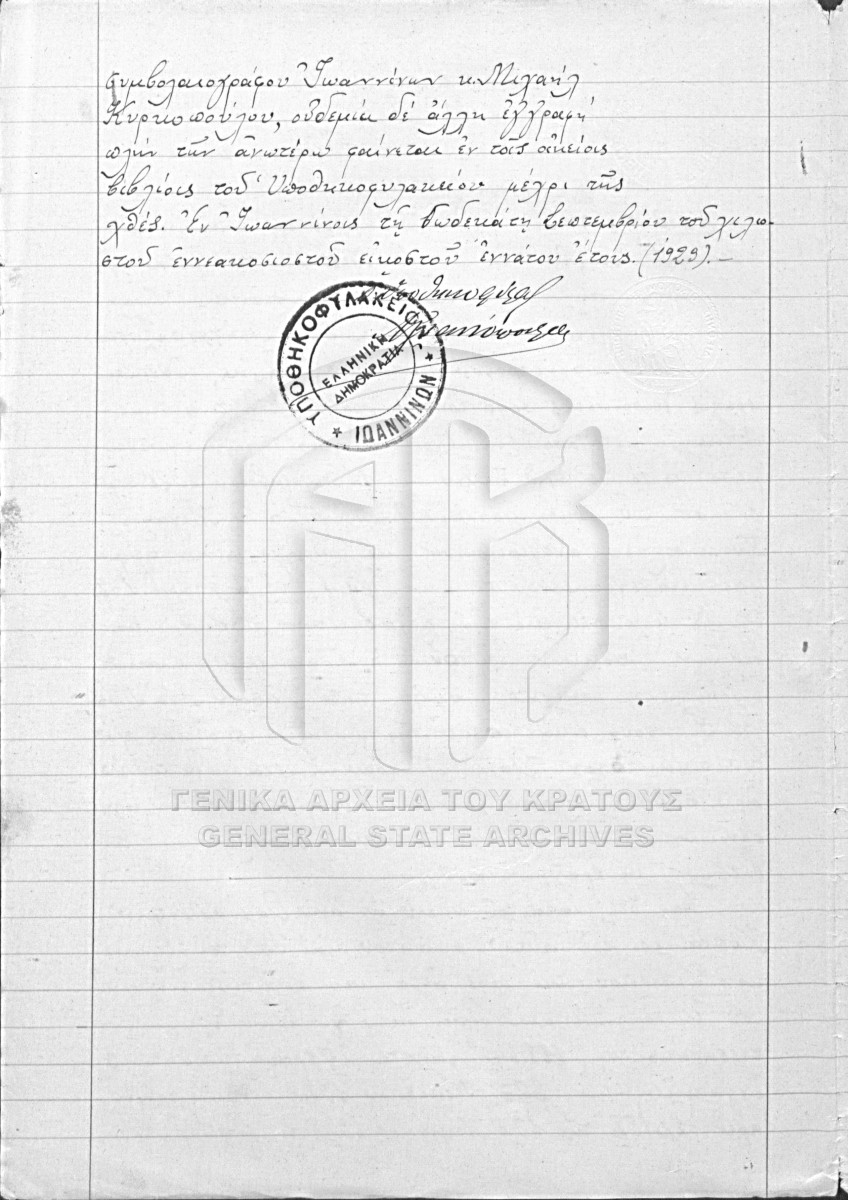 συμβολαιογράφου Ἰωαννίνων κ. Μιχαήλ
Κυρκοπούλου, οὐδεμία δέ ἄλλη ἐγγραφή
πλήν τῶν ἀνωτέρω φαίνεται ἐν τοῖς οἰκείοις
βιβλίοις τοῦ Ὑποθηκοφυλακείου μέχρι τῆς
χθές. Ἐν Ἰωαννίνοις τῇ δωδεκάτῃ Σεπτεμβρίου τοῦ χιλιο-
στοῦ ἐννεακοσιοστοῦ εἰκοστοῦ ἐννάτου ἔτους. (1929).—
Ὁ Ὑποθηκοφύλαξ
ΥΠΟΘΗΚΟΦΥΛΑΚΕΙΟΝ
ΕΛΛΗΝΙΚΗ
ΔΗΜΟΚΡΑΤΙΑ
* ΙΩΑΝΝΙΝΩΝ *
ΓΕΝΙΚΑ ΑΡΧΕΙΑ ΤΟΥ ΚΡΑΤΟΥΣ
GENERAL STATE ARCHIVES